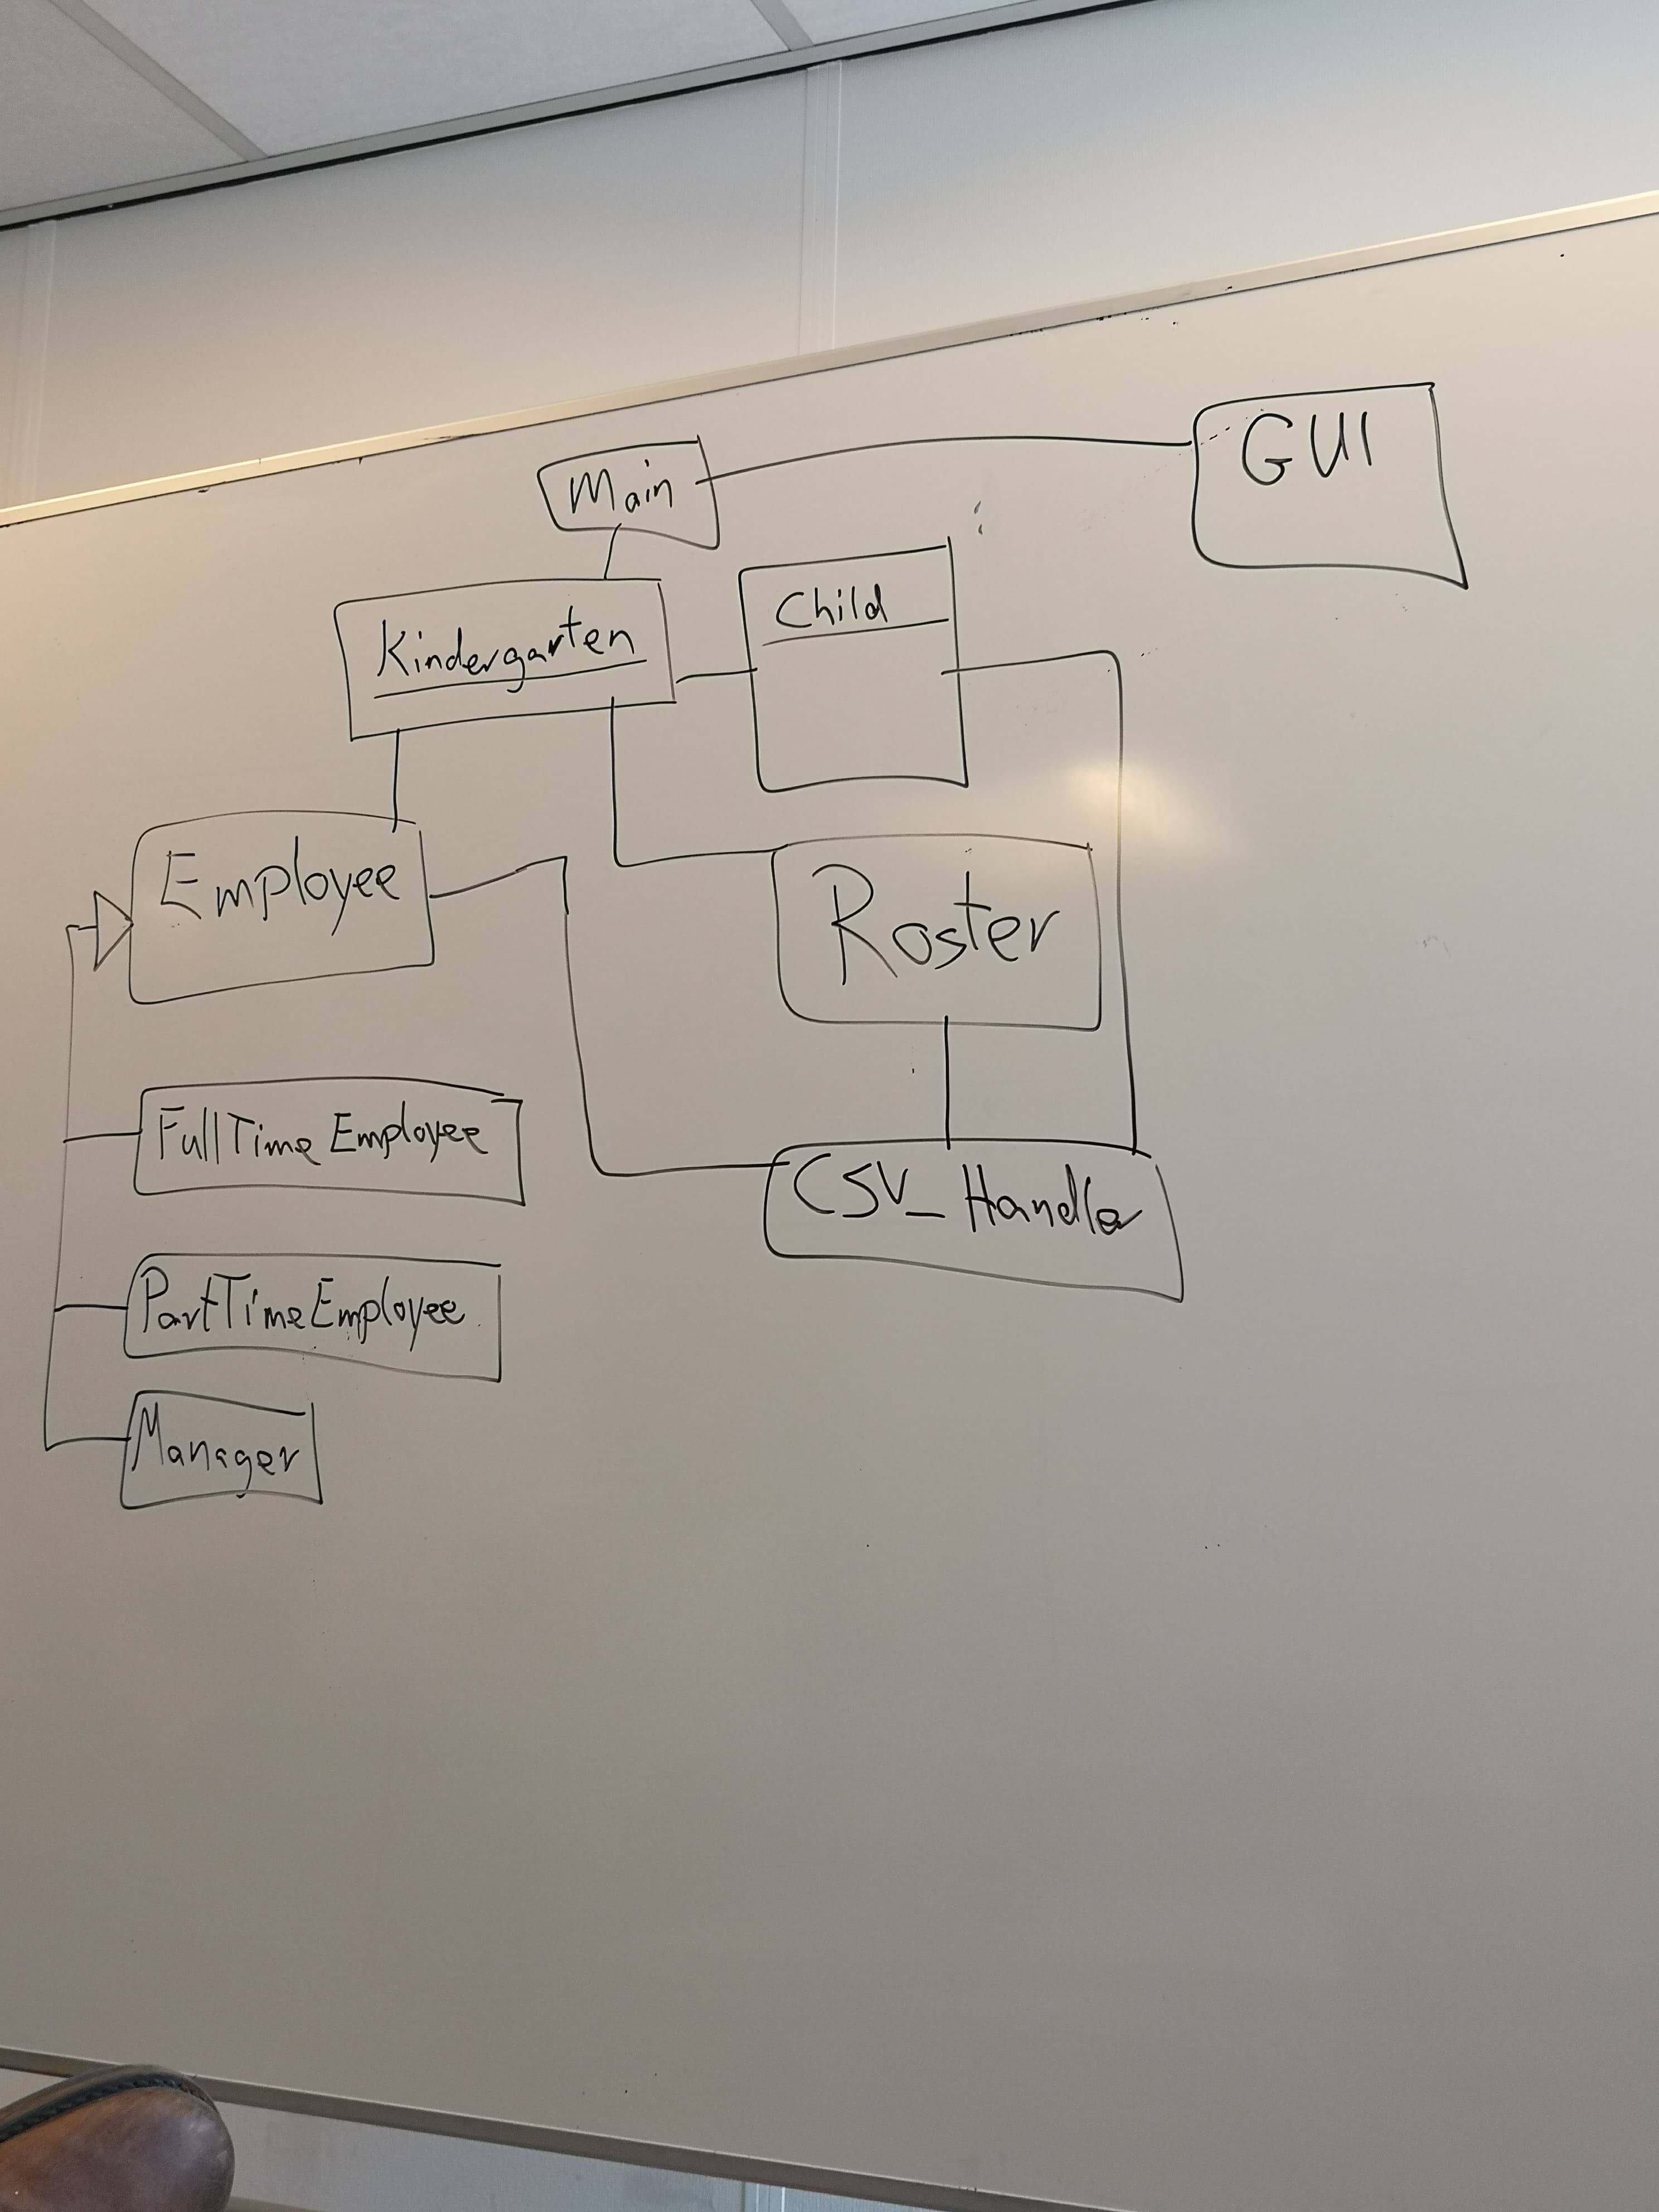 GUI
Main
Child
Kindergarten
Employee
Roster
FullTimeEmployee
CSV_Handler
PartTimeEmployee
Manager